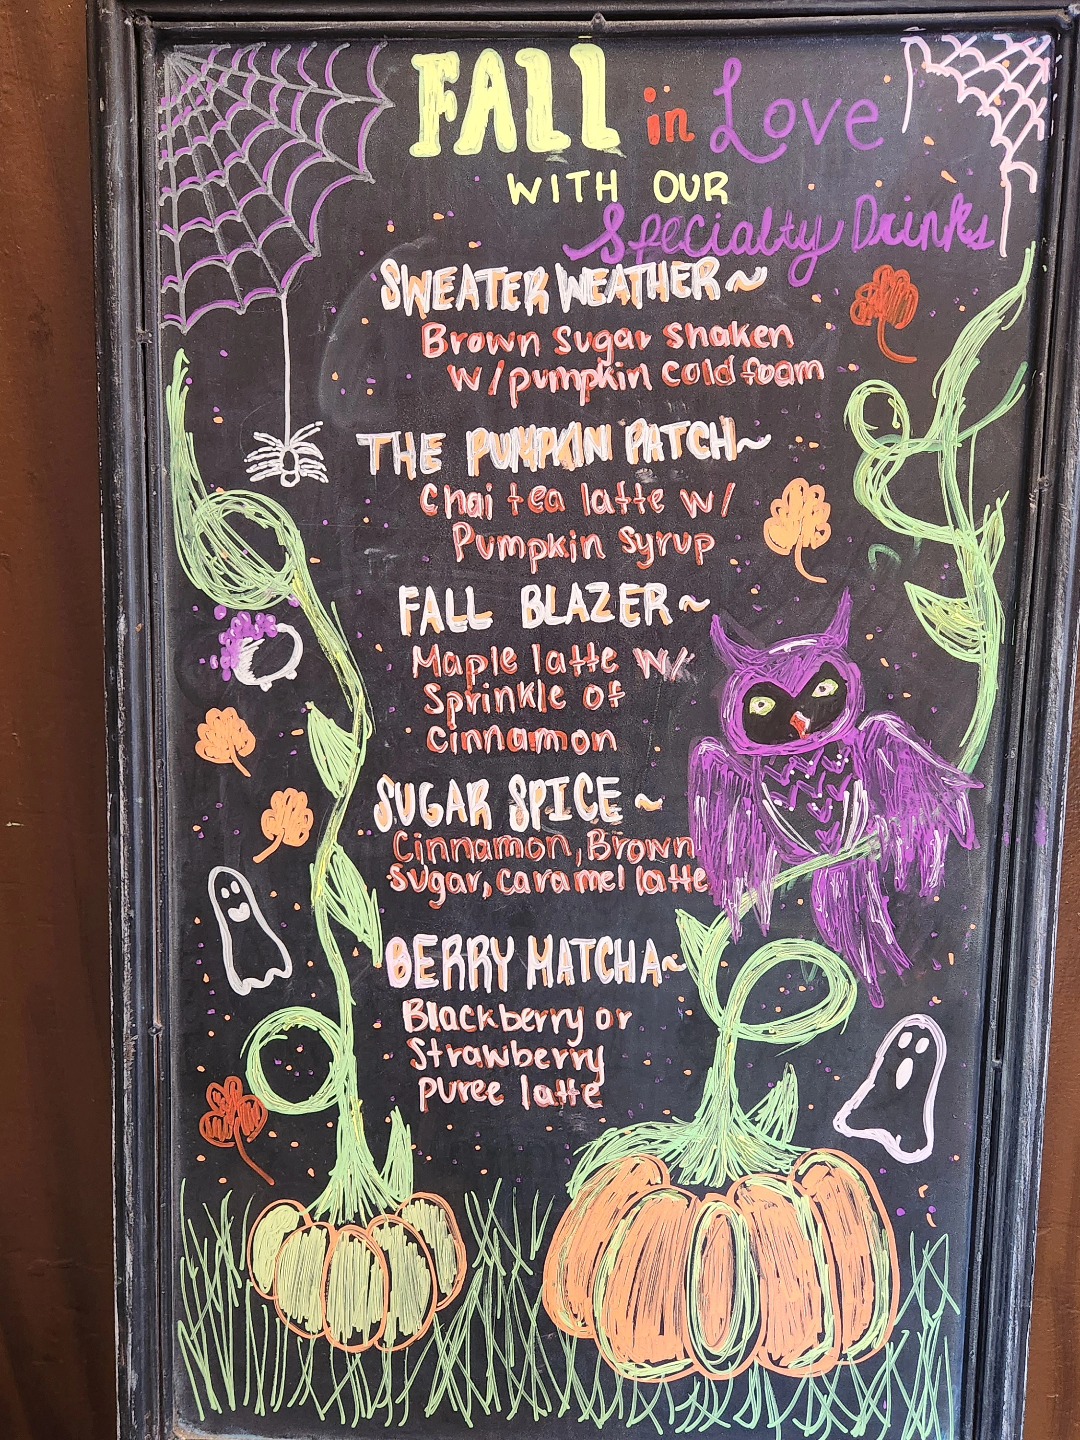 FALL in Love
WITH OUR
Specialty Drinks
SWEATER WEATHER~
Brown Sugar Shaken
W/pumpkin cold foam
THE PUMPKIN PATCH~
Chai tea latte w/
Pumpkin Syrup
FALL BLAZER~
Maple latte W/
Sprinkle of
cinnamon
SUGAR SPICE~
Cinnamon, Brown
Sugar, caramel latte
BERRY MATCHA~
Blackberry or
Strawberry
puree latte